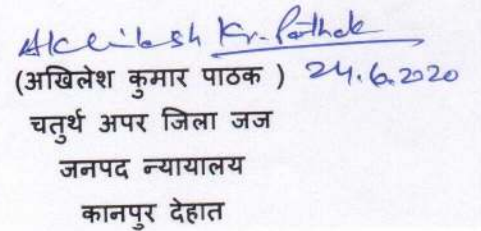 Akhilesh Kr. Pathak
(अखिलेश कुमार पाठक ) 24.6.2020
चतुर्थ अपर जिला जज
जनपद न्यायालय
कानपुर देहात